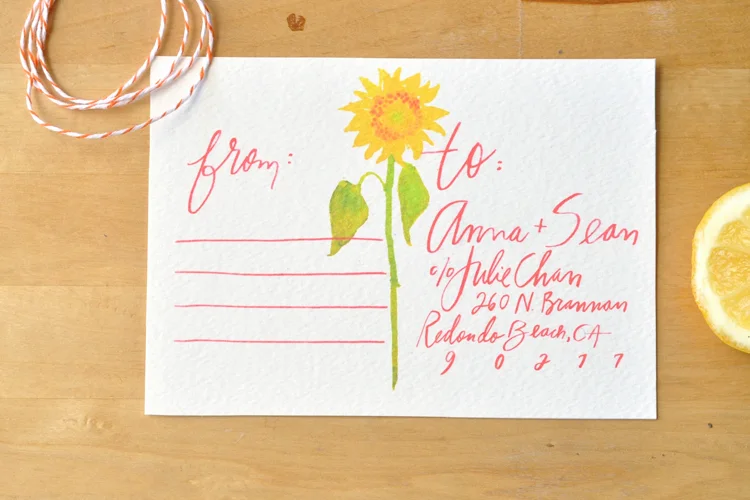 from:
to:
Anna + Sean
c/o Julie Chan
260 N. Brannan
Redondo Beach, CA
90277